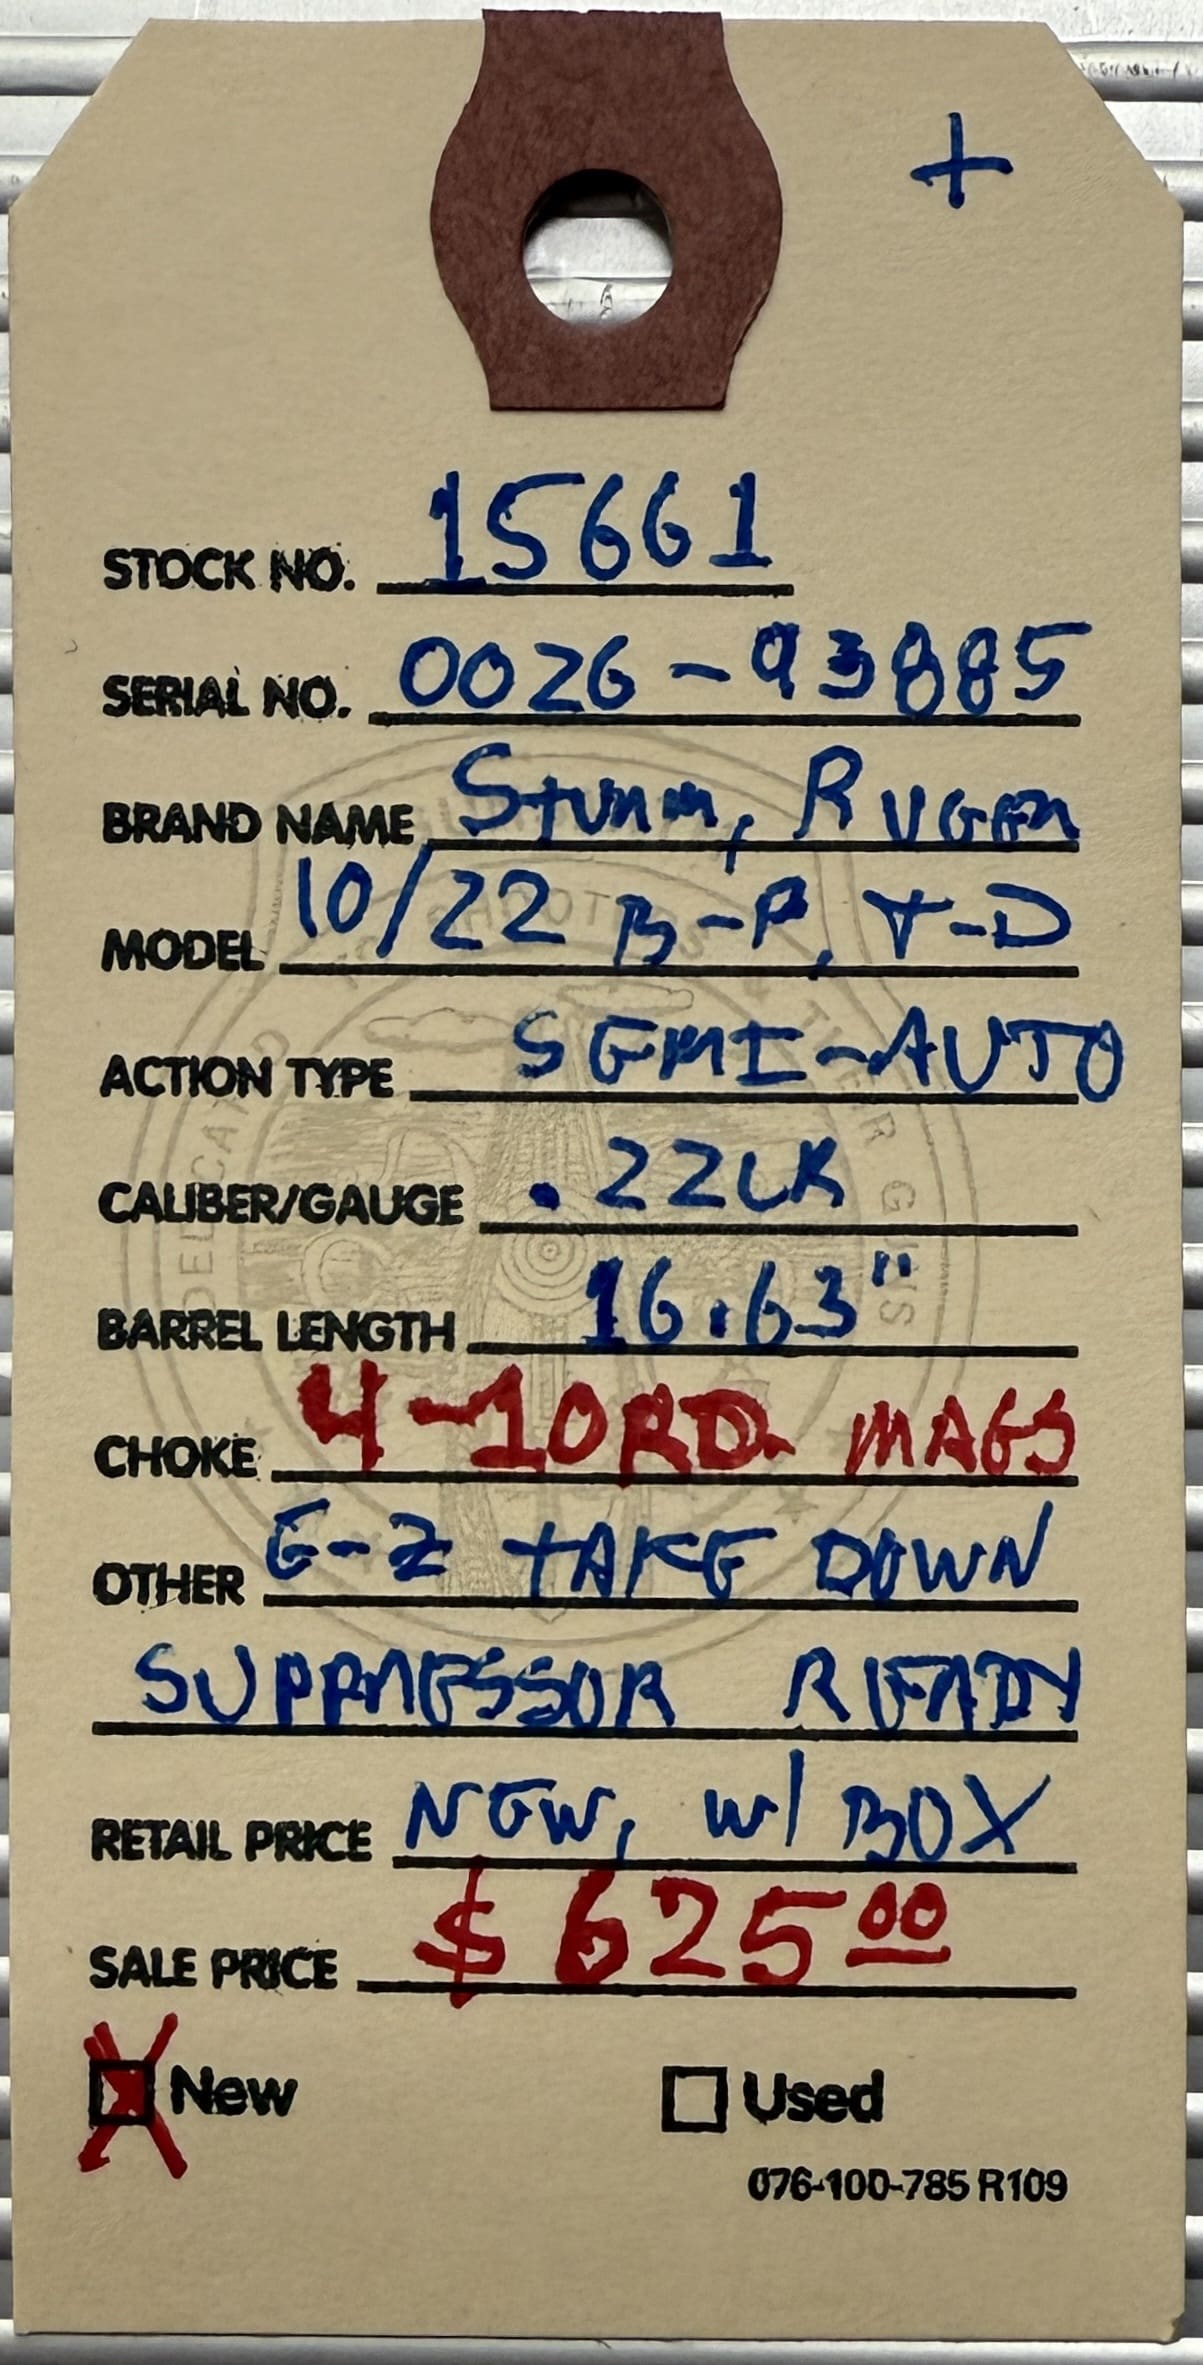 +
STOCK NO. 15661
SERIAL NO. 0026-93885
BRAND NAME Sturm, RUGER
MODEL 10/22 B-P, T-D
ACTION TYPE SEMI-AUTO
CALIBER/GAUGE .22LR
BARREL LENGTH 16.63"
CHOKE 4-10RD. MAGS
OTHER E-Z TAKE DOWN
SUPPRESSOR READY
RETAIL PRICE NEW, W/ BOX
SALE PRICE $625.00
New Used
076-100-785 R109